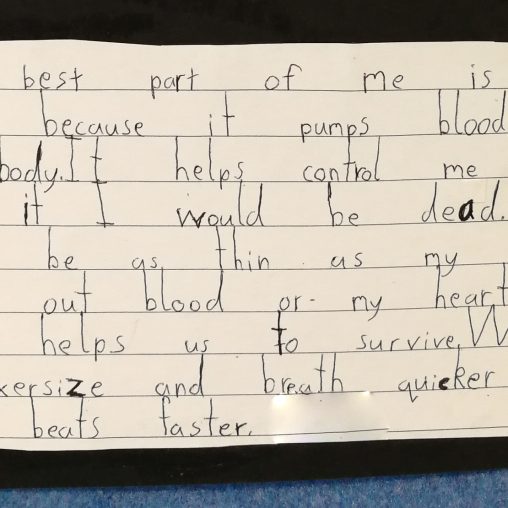 best part of me is
because it pumps blood
body. It helps control me
it I would be dead.
be as thin as my
out blood or my heart
helps us to survive. W
xersize and breath quicker
beats faster.